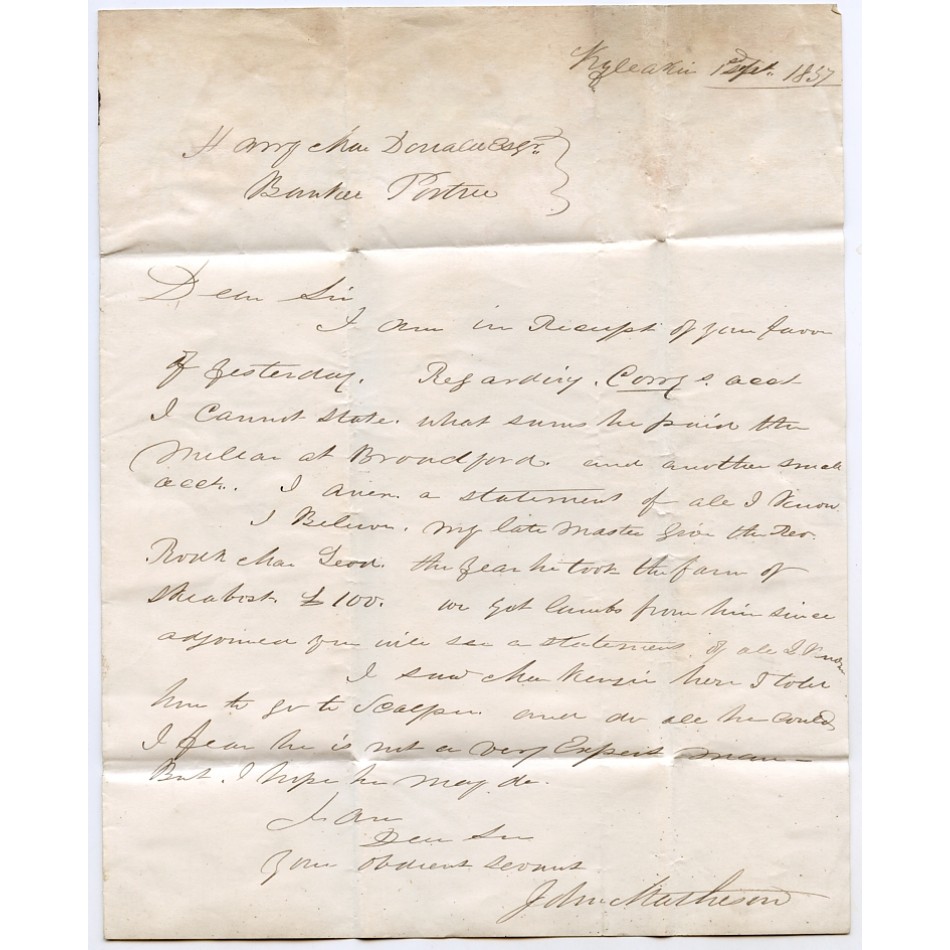 Kyleakin 1 Sept. 1857
Harry MacDonald Esqr.
Banker Portree
Dear Sir
I am in Receipt of your favor
of Yesterday. Regarding. Corrys. acct
I Cannot state. what sums he paid the
Millar at Broadford. and another small
acct. I a statement of all I Know
I Beleive. my late Master Give the Rev.
Rodk MacLeod. the year he took the farm of
Skeabost. £100. we got lambs from him since
adjoined you will see a statement of all I Know
I saw MacKenzie here I told
him to go to Scalpa. and do all he Could
I fear he is not a very Expert man –
But. I hope he may do.
I am
Dear Sir
your obdient servant
John Matheson